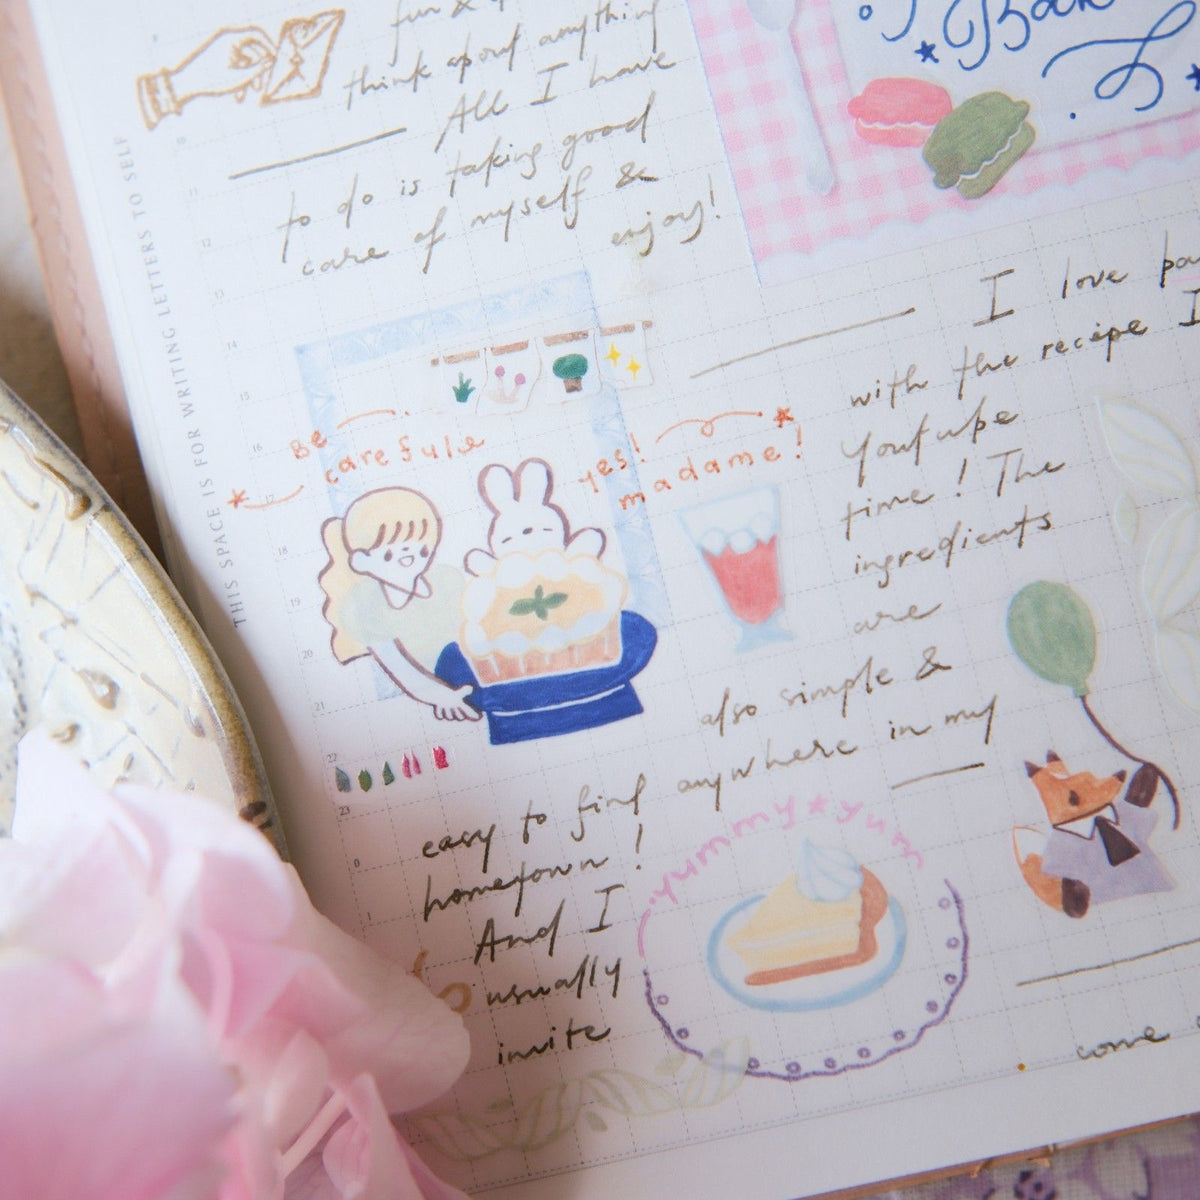 fun &
think about anything
All I have
to do is taking good
care of myself &
enjoy!
THIS SPACE IS FOR WRITING LETTERS TO SELF
I love
with the recipe I
Youtube
time! The
ingredients
are
also simple &
easy to find anywhere in my
hometown!
And I
usually
invite
Be
carefule
yes!
madame!
yummy★yum
come
9
11
12
13
14
15
16
17
18
19
20
21
22
23
0
1